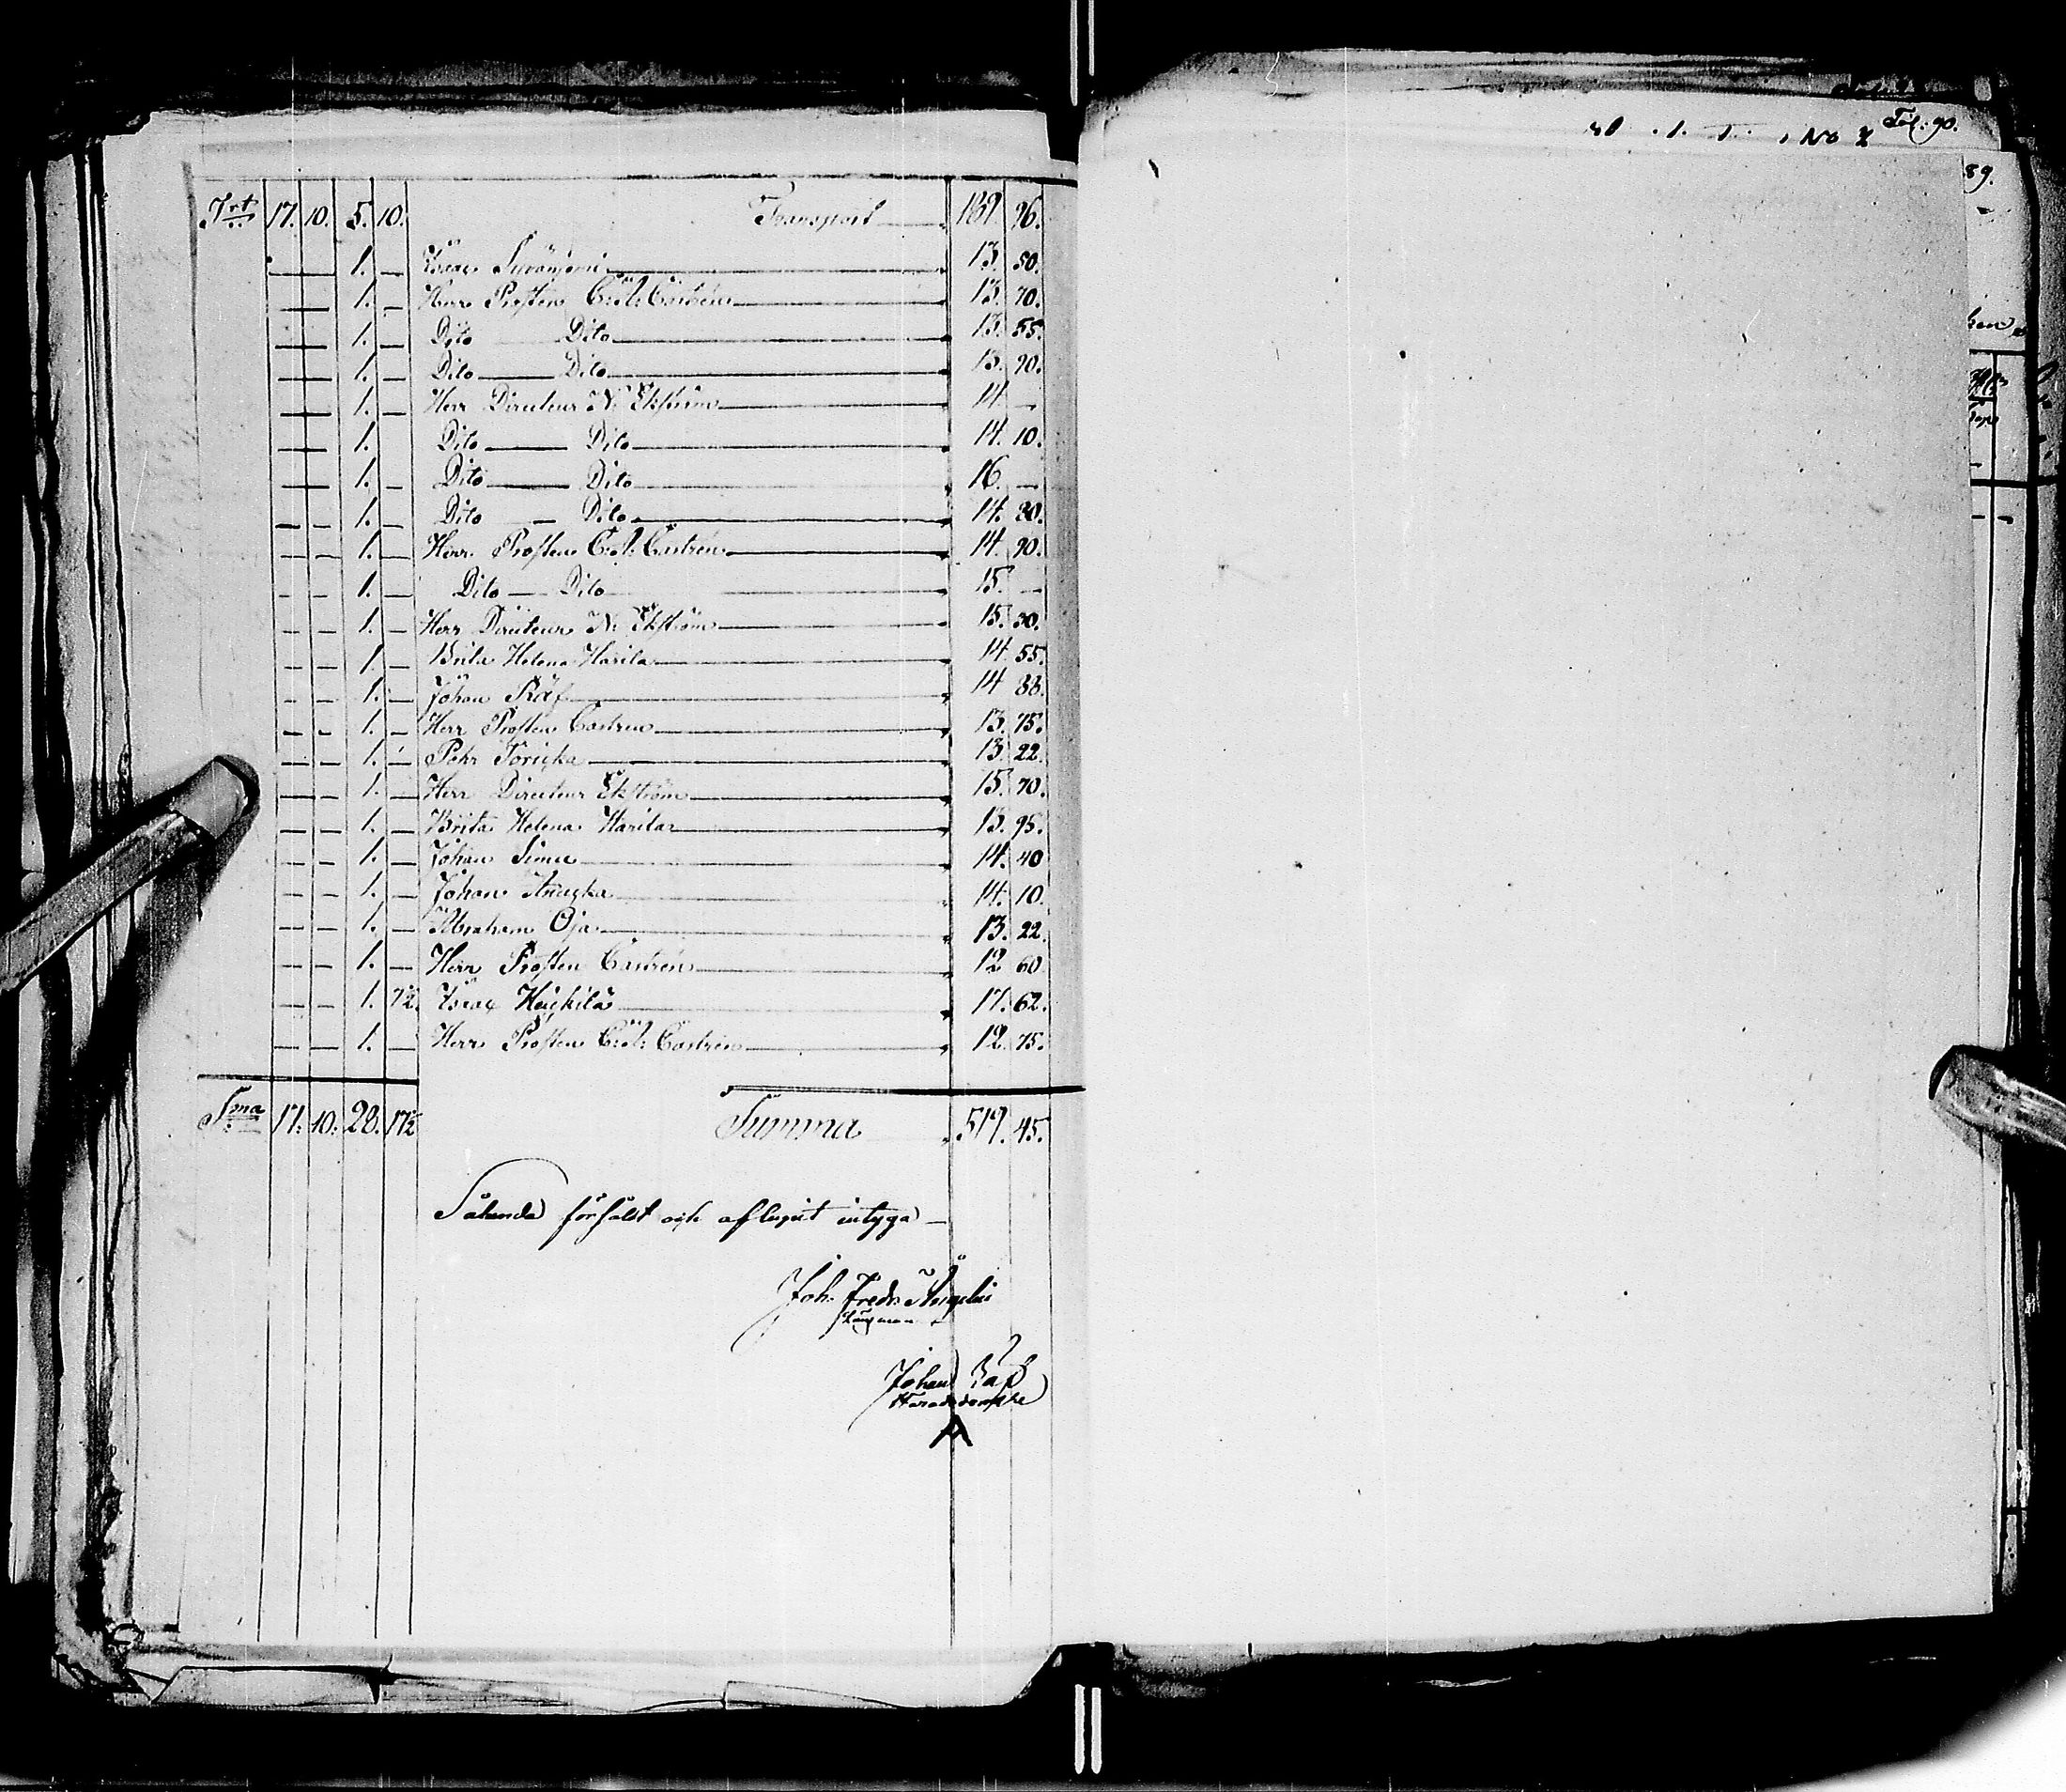 Trt 17. 10. 5. 10. Transport 189. 96.
1. — Isac 13. 50.
1. — Herr Prosten C: Castrén 13. 70.
1. — Dito Dito 13. 55.
1. — Dito Dito 13. 90.
1. — Herr Directeur N: Ekström 14. —
1. — Dito Dito 14. 10.
1. — Dito Dito 16. —
1. — Dito Dito 14. 80.
1. — Herr Prosten C: Castrén 14. 90.
1. — Dito Dito 15. —
1. — Herr Directeur N: Ekström 15. 30.
1. — Brita Helena Harila 14. 55.
1. — Johan Räf 14 88.
1. — Herr Prosten Castren 13. 75.
1. — Pehr 13. 22.
1. — Herr Directeur Ekström 15. 70.
1. — Brita Helena Harila 13. 95.
1. — Johan Simu 14. 40
1. — Johan 14. 10.
1. — Abraham Oja 13. 22.
1. — Herr Prosten Castrén 12 60
1. 7½. Isac Heickilä 17. 62.
1. — Herr Prosten C: Castrén 12. 75.
Sma 17. 10. 28. 17½ Summa 519. 45.
Sålunda försåldt och aflupit intyga —
Joh. Fredr.
Länsman
Johan Räf
Häradsdomare
No 2 Fol: 90.
89.